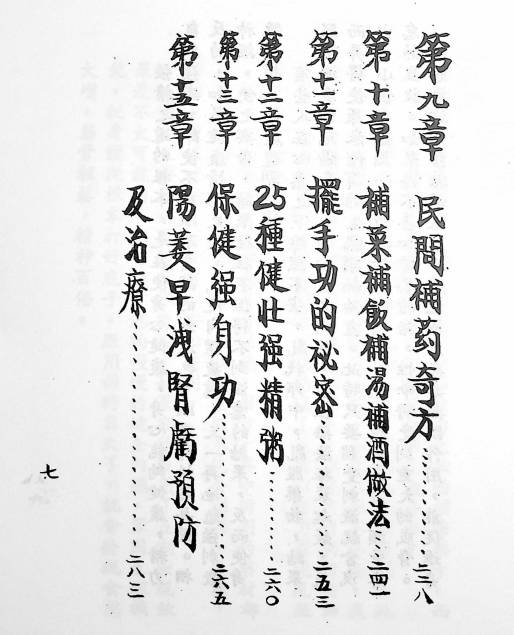 第九章 民間補药奇方………二三八
第十章 補菜補飯補湯補酒做法…二四一
第十一章 擺手功的祕密………二五三
第十二章 25種健壯强精粥………二六〇
第十三章 保健强身功………二六五
第十五章 陽萎早洩腎虧預防
及治療………二八三
七